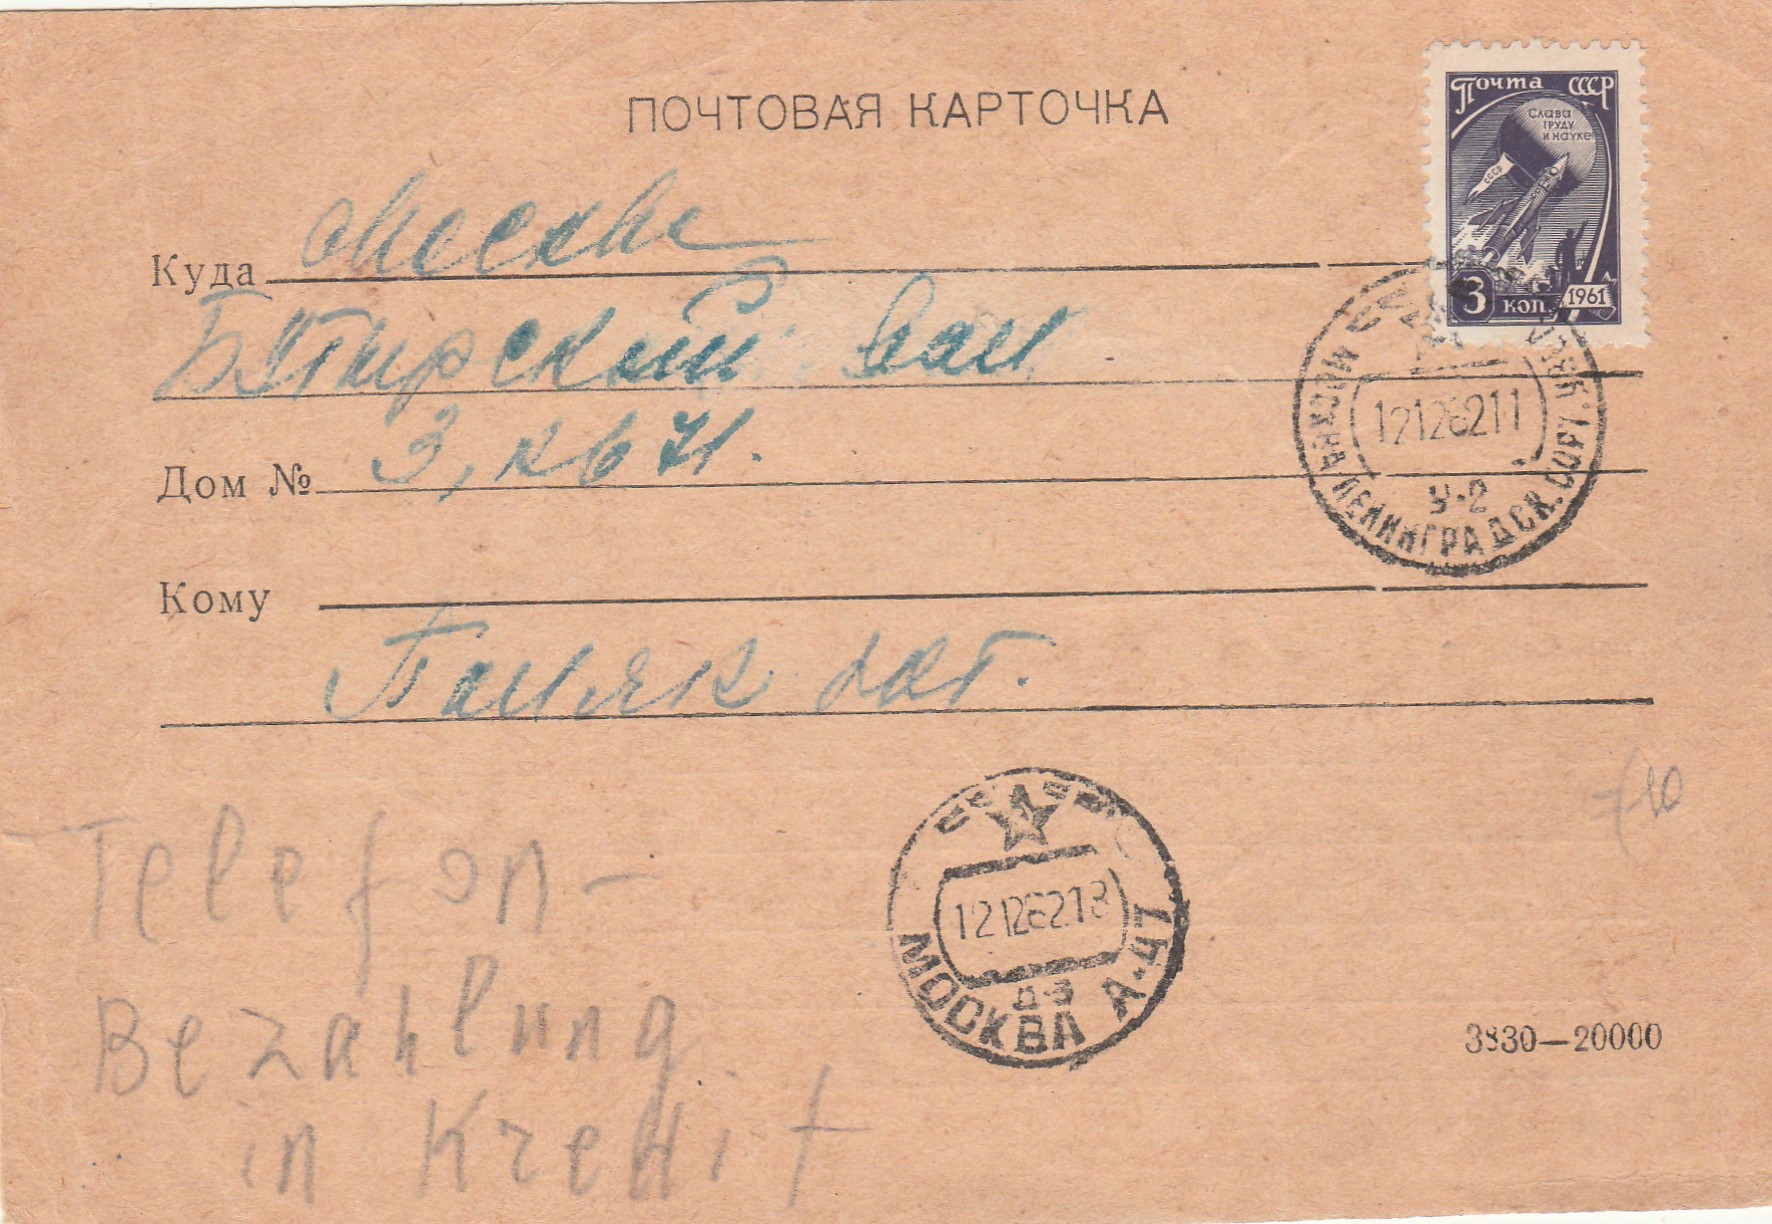 ПОЧТОВАЯ КАРТОЧКА
Почта СССР
Слава
труду
и науке
СССР
3 коп. 1961
Куда Москва
Бутырский вал
Дом № 3, кв 71.
Кому
МОСКВА ЛЕНИНГРАДСК. СОРТ. УЧАСТ.
12126211
У-2
12126218
Д-3
МОСКВА А-47
Telefon-
Bezahlung
in Kredit
3830—20000